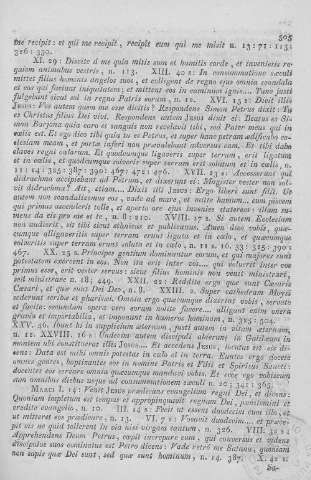 505
me recepit: et qui me recepit, recipit eum qui me misit n. 13: 71: 113:
326: 330.
XI. 29: Discite a me quia mitis sum et humilis corde, et invenietis requiem animabus vestris, n. 113. XIII. 40: In consummatione saeculi
mittet filius hominis angelos suos, et colligent de regno ejus omnia scandala
et eos qui faciunt iniquitatem; et mittent eos in caminum ignis... Tunc justi
fulgebunt sicut sol in regno Patris eorum, n. 12. XVI. 15: Dicit illis
Jesus: Vos autem quem me esse dicitis? Respondens Simon Petrus dixit: Tu
es Christus filius Dei vivi. Respondens autem Jesus dixit ei: Beatus es Simon Barjona quia caro et sanguis non revelavit tibi, sed Pater meus qui in
coelis est. Et ego dico tibi quia tu es Petrus, et super hanc petram aedificabo ecclesiam meam, et portae inferi non praevalebunt adversus eam. Et tibi dabo
claves regni coelorum. Et quodcumque ligaveris super terram, erit ligatum
et in coelis, et quodcumque solveris super terram erit solutum et in coelis, n.
11: 14: 325: 387: 390: 467: 472: 476. XVII. 23: Accesserunt qui
didrachma accipiebant ad Petrum, et dixerunt ei: Magister vester non solvit didrachma? Ait, etiam... Dixit illi Jesus: Ergo liberi sunt filii. Ut
autem non scandalizemus eos, vade ad mare, et mitte hamum... eum piscem
qui primus ascenderit tolle, et aperto ore ejus invenies staterem: illum sumens da eis pro me et te, n. 8: 210. XVIII. 17: Si autem Ecclesiam
non audierit, sit tibi sicut ethnicus et publicanus. Amen dico vobis, quaecumque alligaveritis super terram erunt ligata et in coelo, et quaecumque
solveritis super terram erunt soluta et in coelo, n. 11: 16. 33: 325: 390:
467. XX. 25: Principes gentium dominantur eorum, et qui majores sunt
potestatem exercent in eos. Non ita erit inter vos... qui voluerit inter vos
primus esse, erit vester servus: sicut filius hominis non venit ministrari,
sed ministrare n. 18; 449. XXII. 21: Reddite ergo quae sunt Caesaris
Caesari, et quae sunt Dei Deo, n. 8. XXIII. 2: Super cathedram Moysi
sederunt scribae et pharisaei. Omnia ergo quaecumque dixerint vobis, servate
et facite: secundum opera vero eorum nolite facere... alligant enim onera
gravia et importabilia, et imponunt in humeros hominum, n. 325: 504.
XXV. 46. Ibunt hi in supplicium aeternum, justi autem in vitam aeternam,
n. 12. XXVIII. 16: Undecim autem discipuli abierunt in Galilaeam in
montem ubi constituerat illis Jesus... Et accedens Jesus, locutus est eis dicens: Data est mihi omnis potestas in coelo et in terra. Euntes ergo docete
omnes gentes, baptizantes eos in nomine Patris et Filii et Spiritus Sancti:
docentes eos servare omnia quaecumque mandavi vobis. Et ecce ego vobiscum
sum omnibus diebus usque ad consummationem saeculi n. 20; 341: 365.
MARCI I. 14: Venit Jesus praedicans evangelium regni Dei, et dicens:
Quoniam impletum est tempus et appropinquavit regnum Dei, poenitemini et
credite evangelio, n. 10. III. 14: Fecit ut essent duodecim cum illo, et
ut mitteret eos praedicare, n. 13. VI. 7: Vocavit duodecim... et praecepit eis ne quid tollerent in via nisi virgam tantum, n. 326. VIII. 32:
Apprehendens Jesum Petrus, coepit increpare eum, qui conversus et videns
discipulos suos comminatus est Petro dicens: Vade retro me Satana; quoniam
non sapis quae Dei sunt, sed quae sunt hominum, n. 14. 387. X. 42: